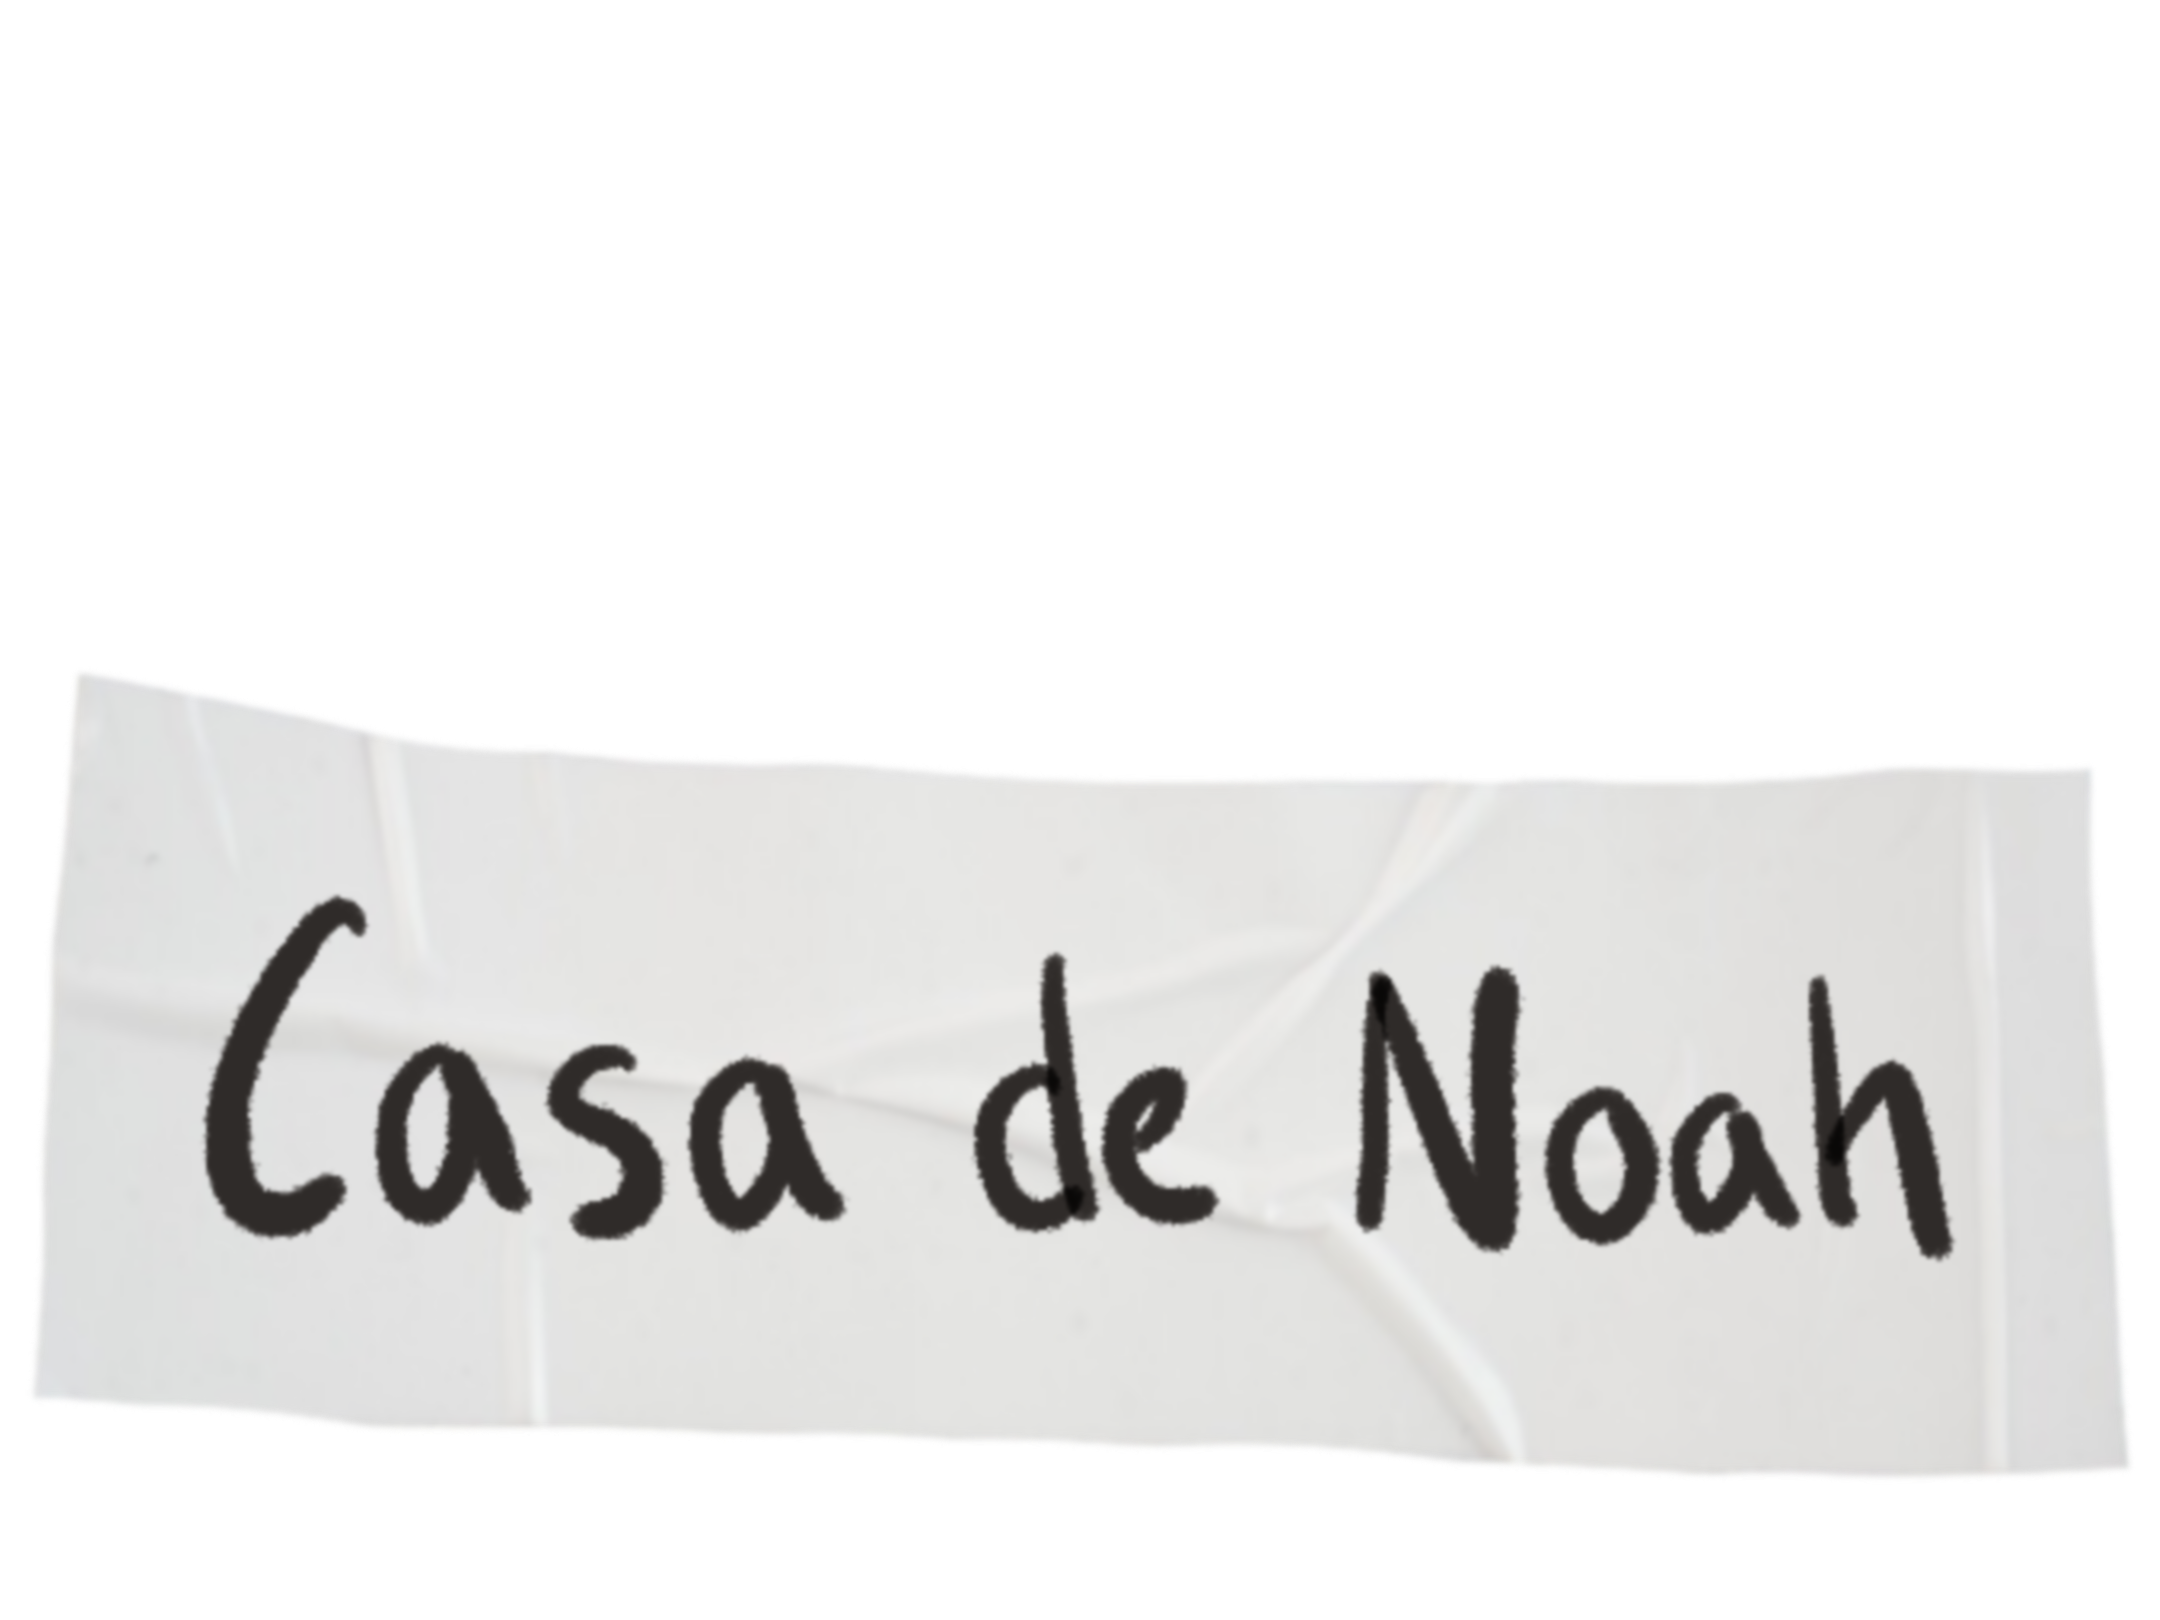 Casa de Noah